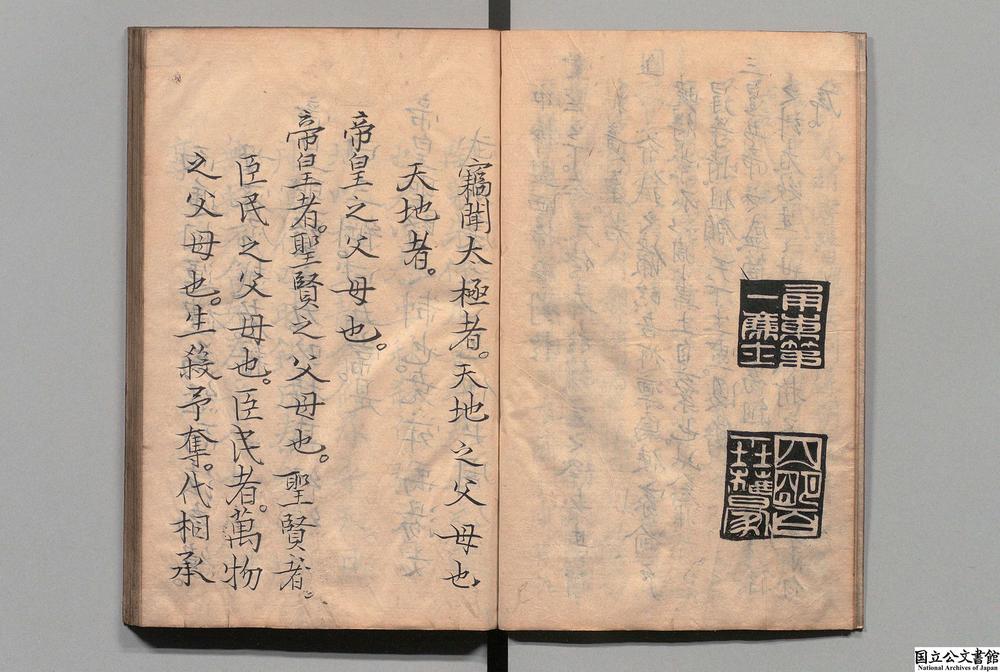 甬東第
一廉士
竊聞太極者。天地之父母也
天地者。
帝皇之父母也。
帝皇者。聖賢之父母也。聖賢者。
臣民之父母也。臣民者。萬物
之父母也。生殺予奪。代相承
国立公文書館
National Archives of Japan